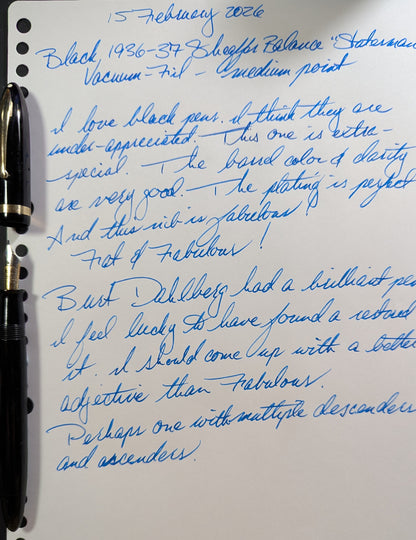 15 February 2026
Black 1936-37 Sheaffer Balance "Statesman
Vacuum-Fil - medium point
I love black pens. I think they are
under-appreciated. This one is extra-
special. The barrel color & clarity
are very good. The plating is perfect
And this nib is fabulous!
Fat & Fabulous!
Burt Dahlberg had a brilliant pen
I feel lucky to have found a
it. I should come up with a better
adjective than Fabulous.
Perhaps one with multiple descenders
and ascenders.